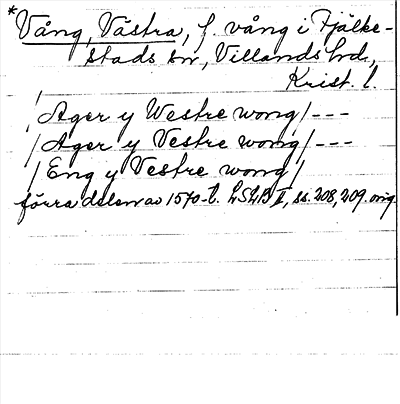 * Vång, Västra, f. vång i Fjälke-
stads sn, Villands hd,
Krist. l.
/ Ager y Westre wong / ---
/ Ager y Vestre wong / ---
/ Eng y Vestre wong /
förra delen av 1570-t. LSLB II, ss. 208, 209. orig.